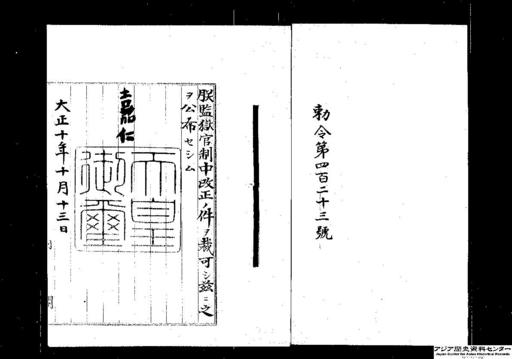 勅令第四百二十三號
朕監獄官制中改正ノ件ヲ裁可シ玆ニ之
ヲ公布セシム
嘉仁
天皇御璽
大正十年十月十三日
アジア歴史資料センター
Japan Center for Asian Historical Records